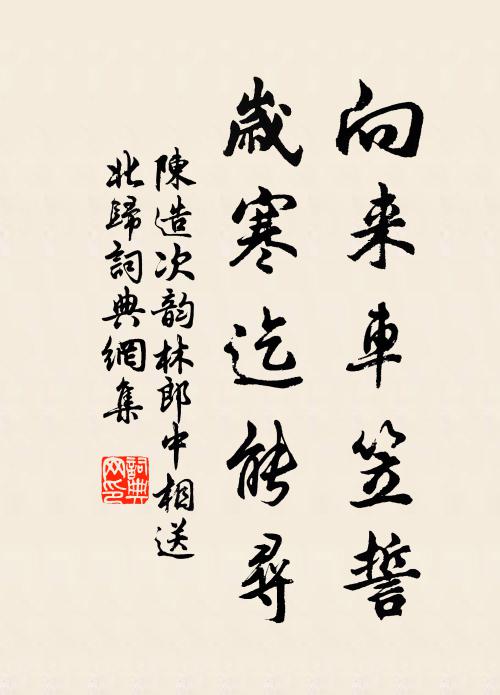 向来車笠誓
歲寒迄能尋
陳造次韵林郎中相送
北歸詞典網集
詞典
网印